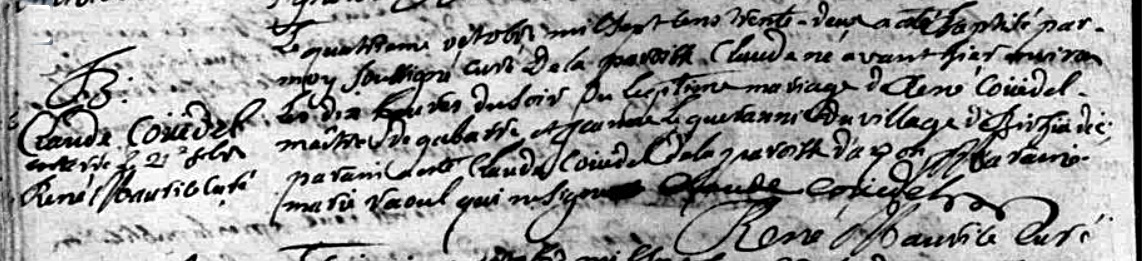 B.
Claude Coüedel
enterré le 21e
René Maurice Curé
Le quatrieme octobre mil sept cens trente-deux a eté baptisé par
moy soussigné curé de la paroisse Claude né avant hier environ
les dix heures du soir du legitime mariage d René Coüedel
maître de gabarre et Jeanne le queranni du village d
parain a eté Claude Coüedel de la paroisse d Maraine
marie Raoul qui ne signe Claude Coüedel
René Maurice Curé